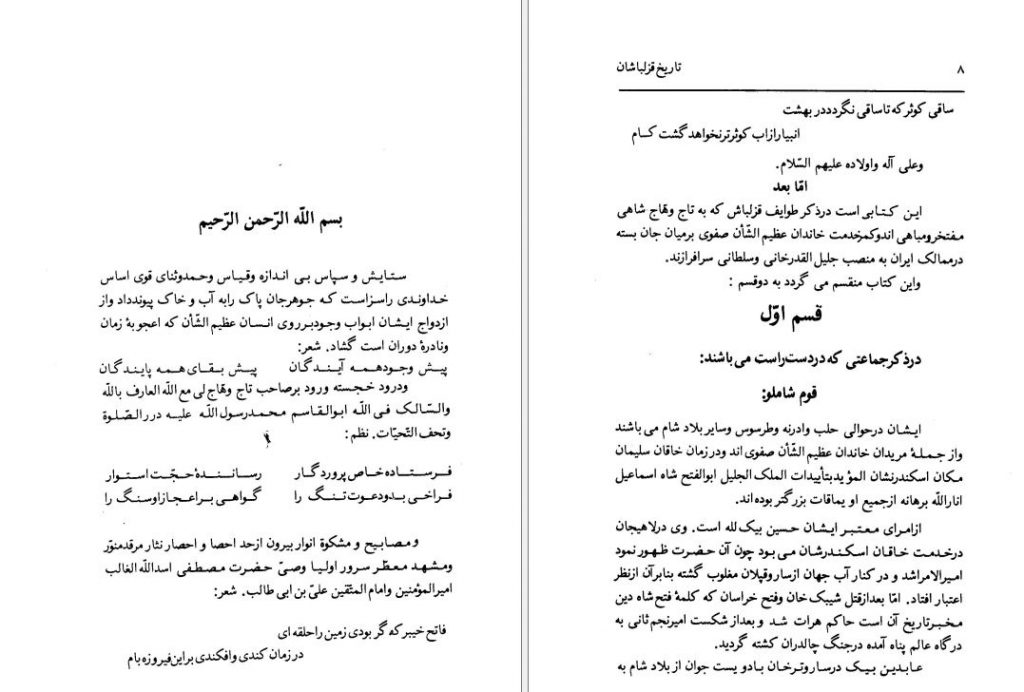 بسم اللّه الرّحمن الرّحیم
ستایش و سپاس بی اندازه وقیاس وحمدوثنای قوی اساس
خداوندی راسزاست که جوهرجان پاک رابه آب و خاک پیوندداد واز
ازدواج ایشان ابواب وجودبرروی انسان عظیم الشّأن که اعجوبهٔ زمان
ونادرهٔ دوران است گشاد. شعر:
پیش وجودهمه آیندگان پیش بقای همه پایندگان
ودرود خجسته ورود برصاحب تاج وهّاج لی مع اللّه العارف باللّه
والسّالک فی اللّه ابوالقاسم محمدرسول اللّه علیه دررالصّلوة
وتحف التّحیّات. نظم:
فرستاده خاص پروردگار رسانندهٔ حجّت استوار
فراخی بدودعوت تنگ را گواهی براعجازاوسنگ را
ومصابیح و مشکوة انوار بیرون ازحد احصا و احصار نثار مرقدمنوّر
ومشهد معطّر سرور اولیا وصیّ حضرت مصطفی اسداللّه الغالب
امیرالمؤمنین وامام المتّقین علیّ بن ابی طالب. شعر:
فاتح خیبرکه گر بودی زمین راحلقه ای
در زمان کندی وافکندی براین فیروزه بام
۸ تاریخ قزلباشان
ساقی کوثرکه تاساقی نگردددر بهشت
انبیارازاب کوثرترنخواهدگشت کام
وعلی آله واولاده علیهم السّلام.
امّا بعد
این کتابی است درذکر طوایف قزلباش که به تاج وهّاج شاهی
مفتخرومباهی اندوکمرخدمت خاندان عظیم الشّأن صفوی برمیان جان بسته
درممالک ایران به منصب جلیل القدرخانی وسلطانی سرافرازند.
واین کتاب منقسم می گردد به دوقسم :
قسم اوّل
درذکرجماعتی که دردست راست می باشند:
قوم شاملو:
ایشان درحوالی حلب وادرنه وطرسوس وسایر بلاد شام می باشند
واز جملهٔ مریدان خاندان عظیم الشّأن صفوی اند ودرزمان خاقان سلیمان
مکان اسکندرنشان المؤیدبتأییدات الملک الجلیل ابوالفتح شاه اسماعیل
اناراللّه برهانه ازجمیع او یماقات بزرگتر بوده اند.
ازامرای معتبر ایشان حسین بیک لله است. وی درلاهیجان
درخدمت خاقان اسکندرشان می بود چون آن حضرت ظهور نمود
امیرالامراشد و در کنار آب جهان ازساروقپلان مغلوب گشته بنابرآن ازنظر
اعتبار افتاد. امّا بعدازقتل شیبک خان وفتح خراسان که کلمهٔ فتح شاه دین
مخبرتاریخ آن است حاکم هرات شد و بعداز شکست امیرنجم ثانی به
درگاه عالم پناه آمده درجنگ چالدران کشته گردید.
عابدین بیک درساروترخان بادو یست جوان از بلاد شام به